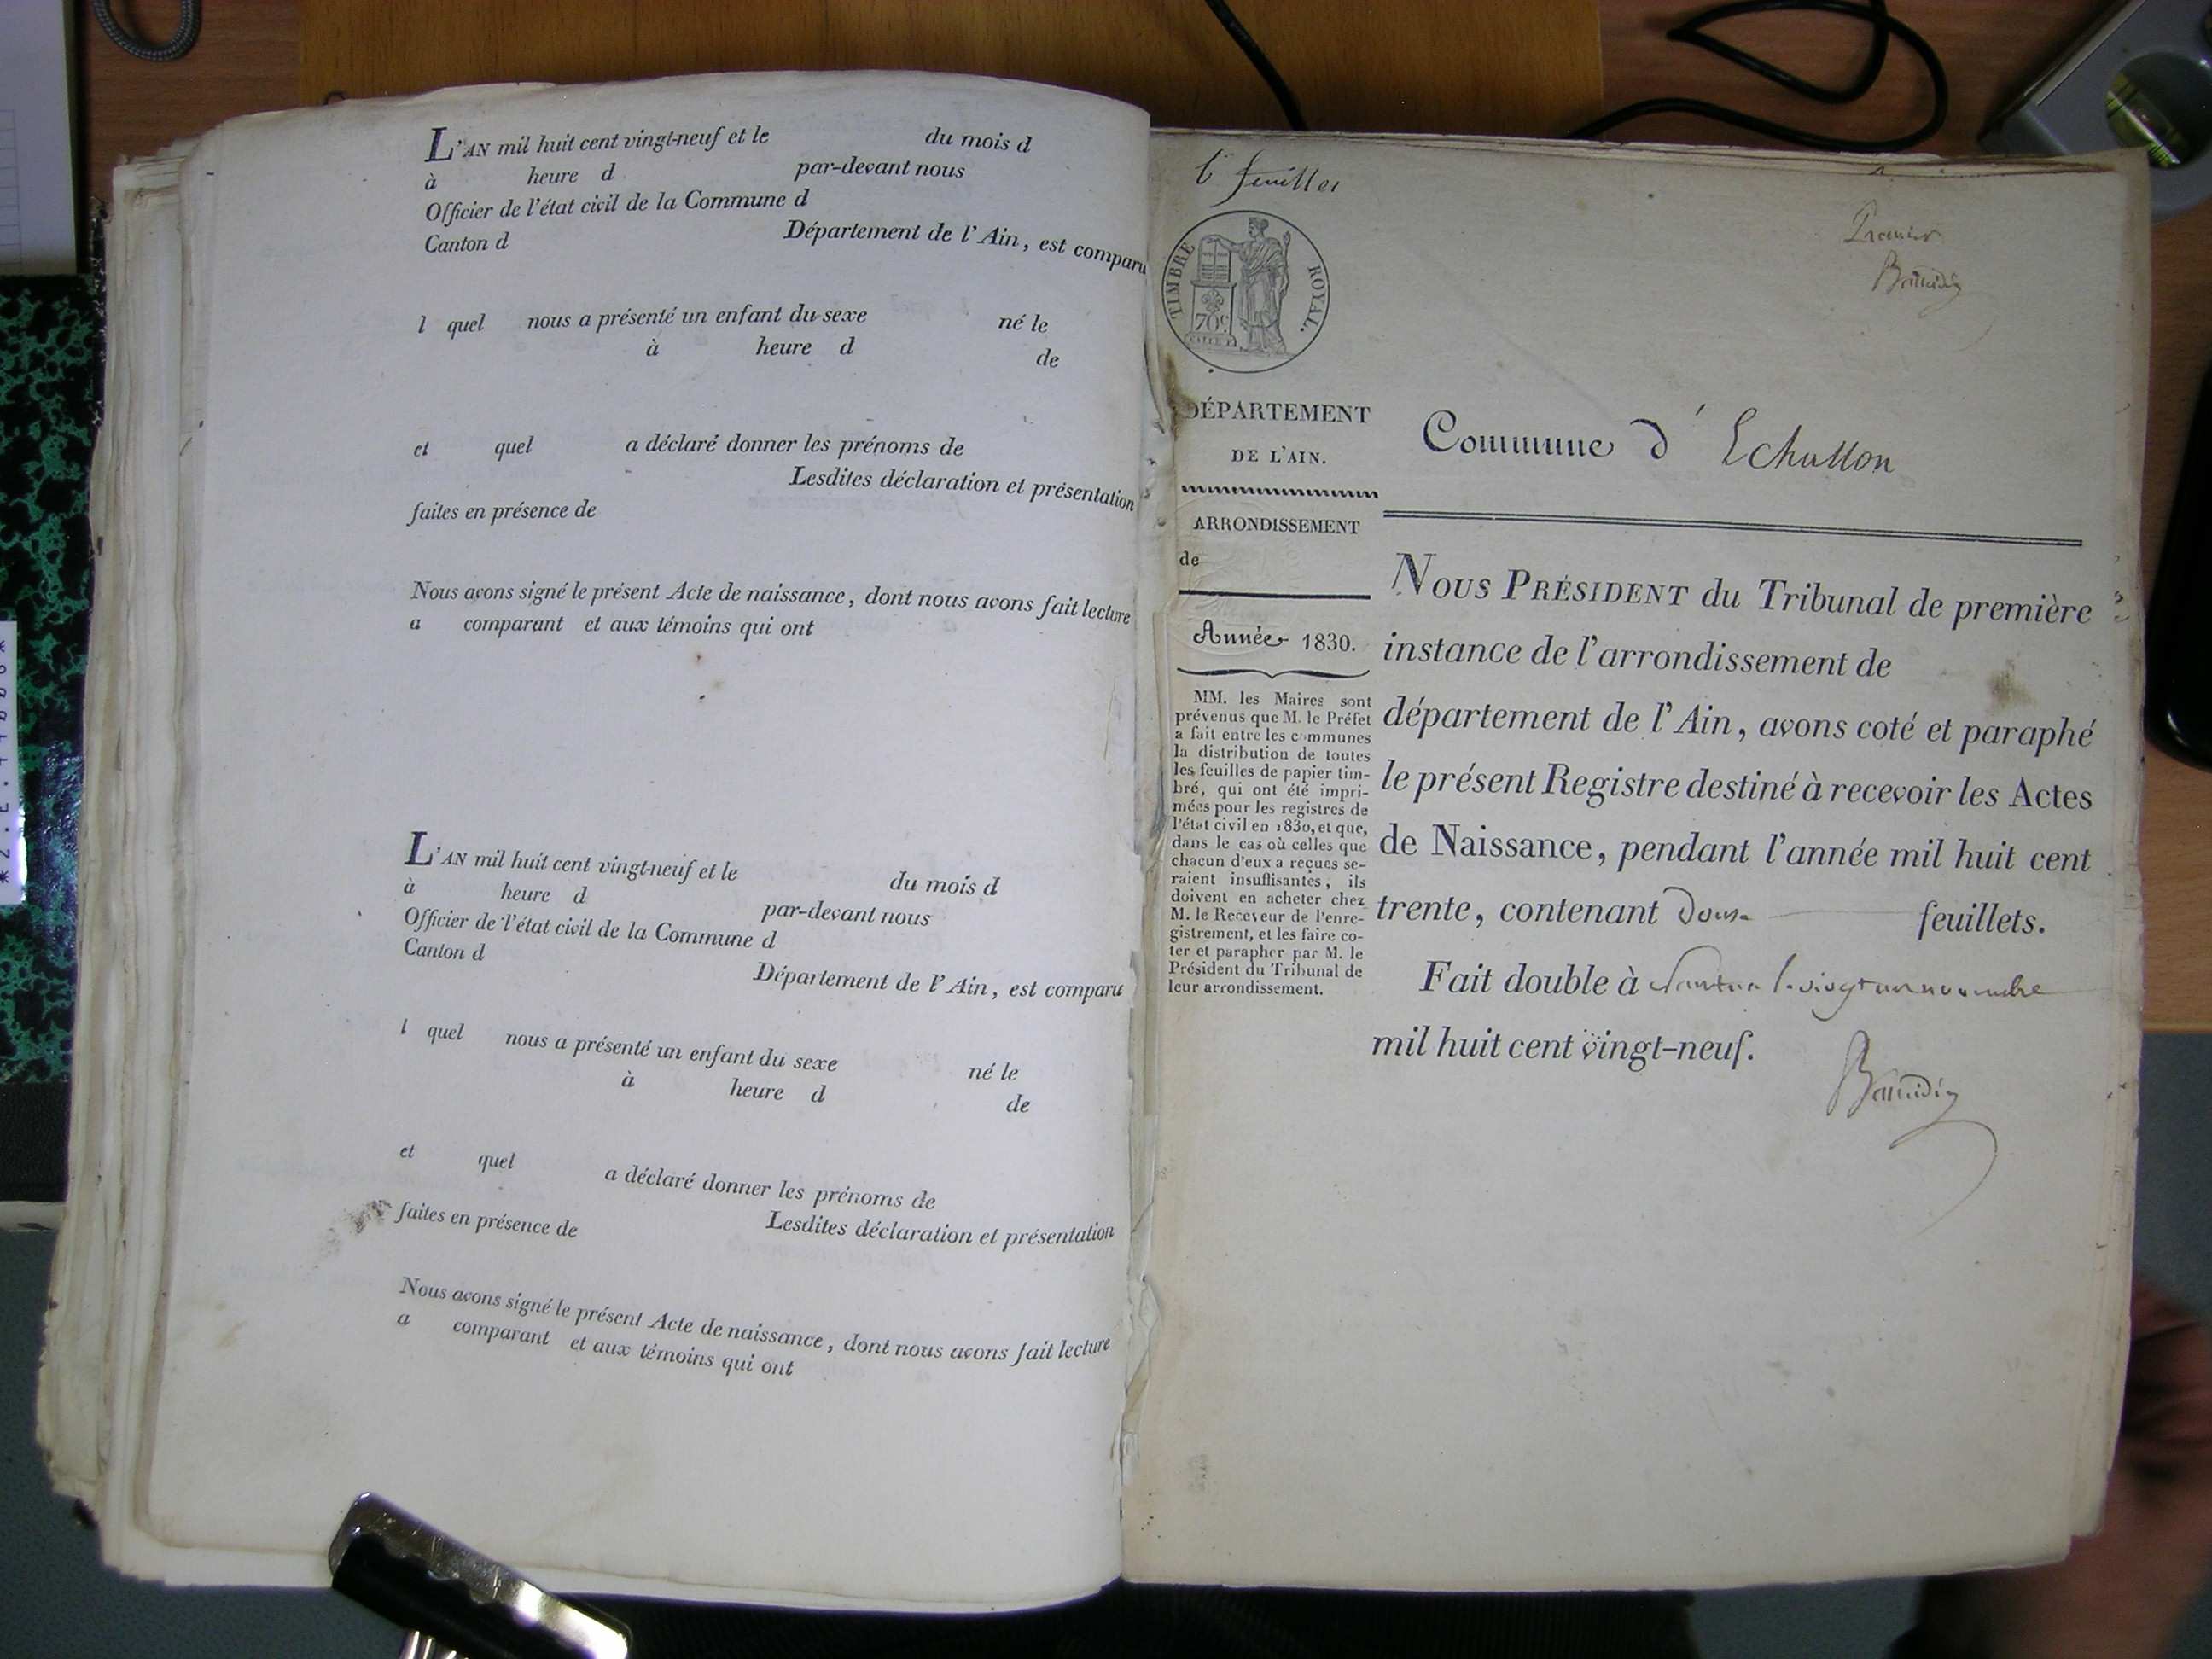 L'AN mil huit cent vingt-neuf et le du mois d
à heure d par-devant nous
Officier de l'état civil de la Commune d
Canton d Département de l'Ain, est comparu
l quel nous a présenté un enfant du sexe né le
à heure d de
et quel a déclaré donner les prénoms de
Lesdites déclaration et présentation
faites en présence de
Nous avons signé le présent Acte de naissance, dont nous avons fait lecture
a comparant et aux témoins qui ont
L'AN mil huit cent vingt-neuf et le du mois d
à heure d par-devant nous
Officier de l'état civil de la Commune d
Canton d Département de l'Ain, est comparu
l quel nous a présenté un enfant du sexe né le
à heure d de
et quel a déclaré donner les prénoms de
Lesdites déclaration et présentation
faites en présence de
Nous avons signé le présent Acte de naissance, dont nous avons fait lecture
a comparant et aux témoins qui ont
feuilles
Premier
TIMBRE ROYAL.
70c
DÉPARTEMENT
DE L'AIN.
ARRONDISSEMENT
de
Année 1830.
MM. les Maires sont
prévenus que M. le Préfet
a fait entre les communes
la distribution de toutes
les feuilles de papier tim-
bré, qui ont été impri-
mées pour les registres de
l'état civil en 1830, et que,
dans le cas où celles que
chacun d'eux a reçues se-
raient insuffisantes, ils
doivent en acheter chez
M. le Receveur de l'enre-
gistrement, et les faire co-
ter et parapher par M. le
Président du Tribunal de
leur arrondissement.
Commune d' Echallon
NOUS PRÉSIDENT du Tribunal de première
instance de l'arrondissement de
département de l'Ain, avons coté et paraphé
le présent Registre destiné à recevoir les Actes
de Naissance, pendant l'année mil huit cent
trente, contenant Douze feuillets.
Fait double à Nantua le vingt un novembre
mil huit cent vingt-neuf.